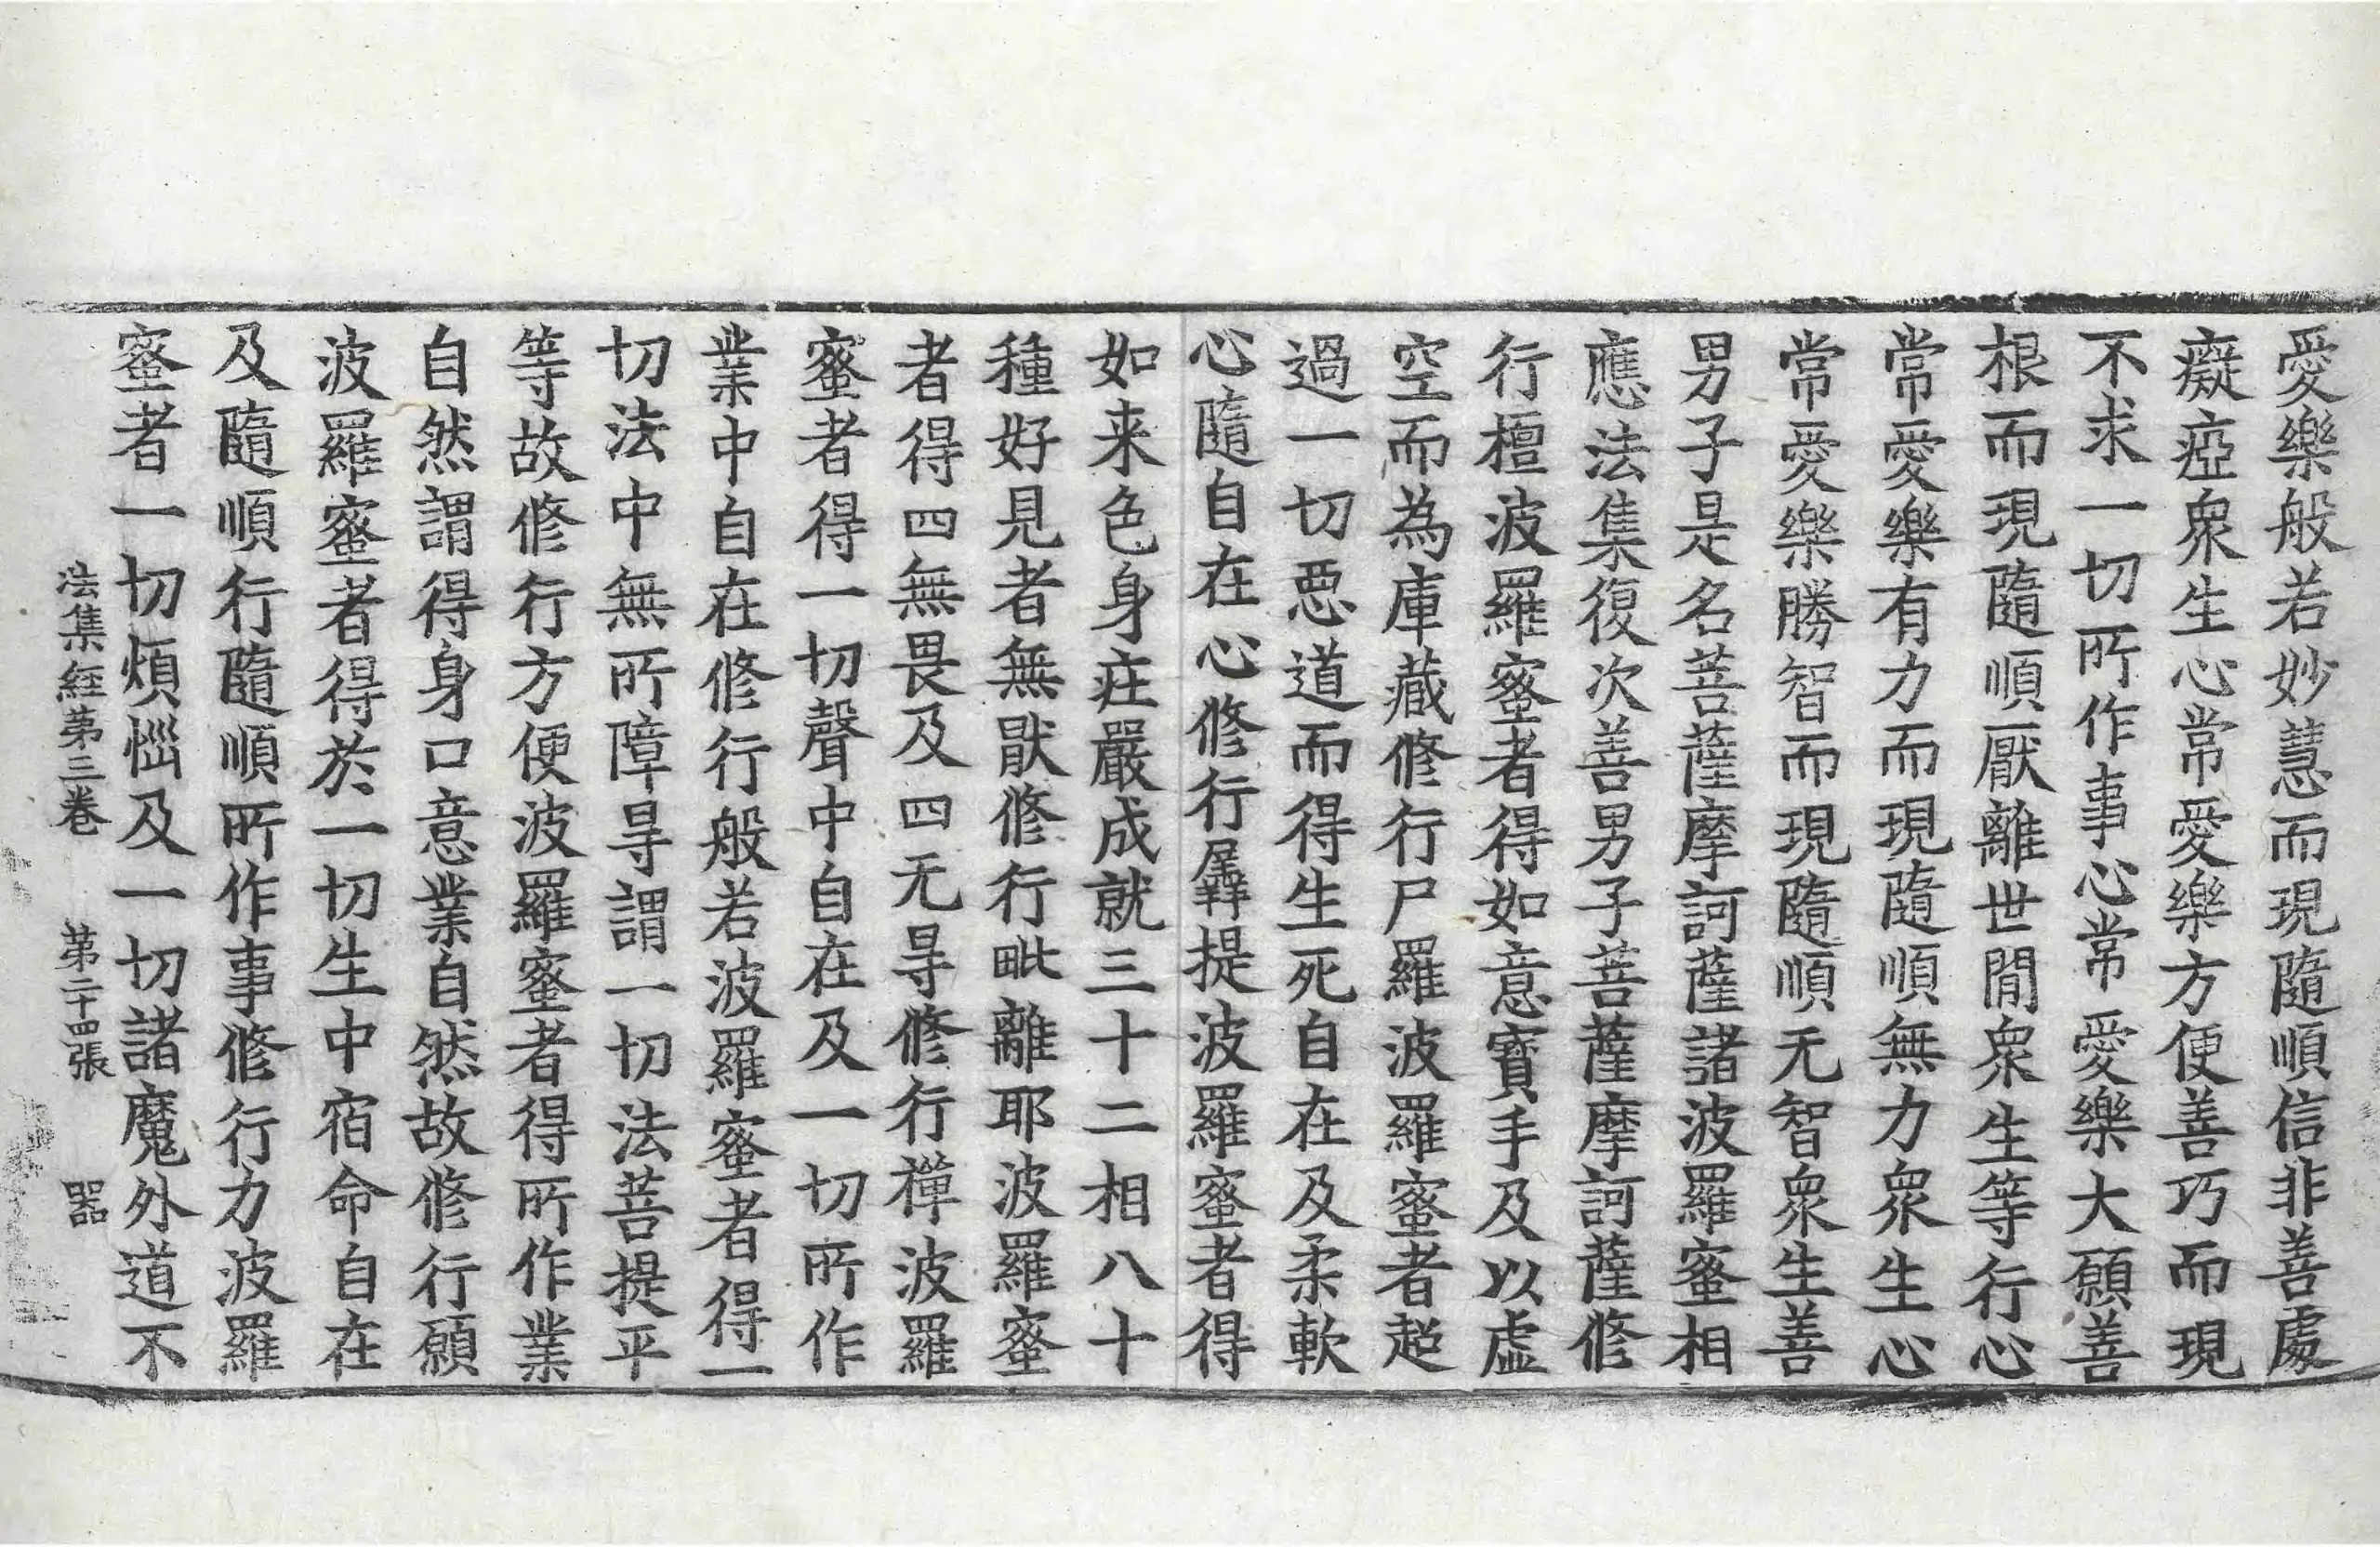 愛樂般若妙慧而現隨順信非善處
癡瘂衆生心常愛樂方便善巧而現
不求一切所作事心常愛樂大願善
根而現隨順厭離世間衆生等行心
常愛樂有力而現隨順無力衆生心
常愛樂勝智而現隨順无智衆生善
男子是名菩薩摩訶薩諸波羅蜜相
應法集復次善男子菩薩摩訶薩修
行檀波羅蜜者得如意寶手及以虛
空而為庫藏修行尸羅波羅蜜者超
過一切惡道而得生死自在及柔軟
心隨自在心修行羼提波羅蜜者得
如来色身莊嚴成就三十二相八十
種好見者無猒修行毗離耶波羅蜜
者得四無畏及四无㝵修行禪波羅
蜜者得一切聲中自在及一切所作
業中自在修行般若波羅蜜者得一
切法中無所障㝵謂一切法菩提平
等故修行方便波羅蜜者得所作業
自然謂得身口意業自然故修行願
波羅蜜者得於一切生中宿命自在
及隨順行隨順所作事修行力波羅
蜜者一切煩惱及一切諸魔外道不
法集經第三卷　第二十四張　器